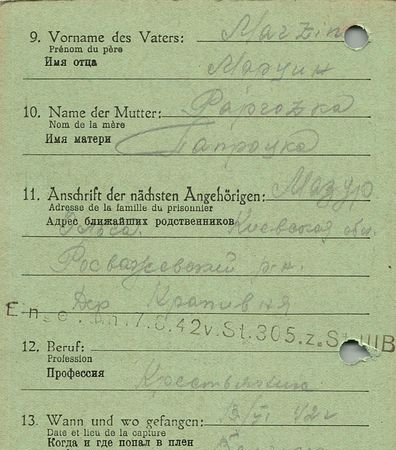 9. Vorname des Vaters: Marzin
Prénom du père
Имя отца Марцин
10. Name der Mutter: Paprozka
Nom de la mère
Имя матери Папроцка
11. Anschrift der nächsten Angehörigen:
Adresse de la famille du prisonnier
Адрес ближайших родственников Киевская обл.
Розважевский р-н.
Дер Крапивня
7.8.42 v. St. 305. z. St. IIIB
12. Beruf:
Profession
Профессия
Крестьянин
13. Wann und wo gefangen: 42 г
Date et lieu de la capture
Когда и где попал в плен